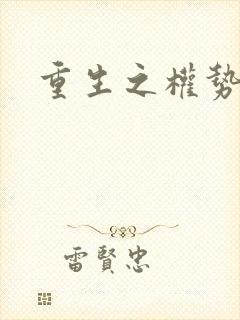 重生之權勢
雷賢忠